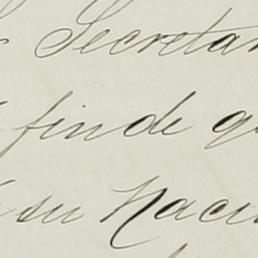 Secreta
fin de q
su Naci